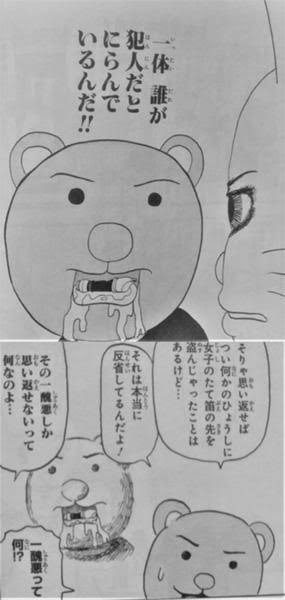 一体誰が
犯人だと
にらんで
いるんだ!!
そりゃ思い返せば
つい何かのひょうしに
女子のたて笛の先を
盗んじゃったことは
あるけど…
それは本当に
反省してるんだよ!
その一醜悪しか
思い返せないって
何なのよ…
一醜悪って
何!?